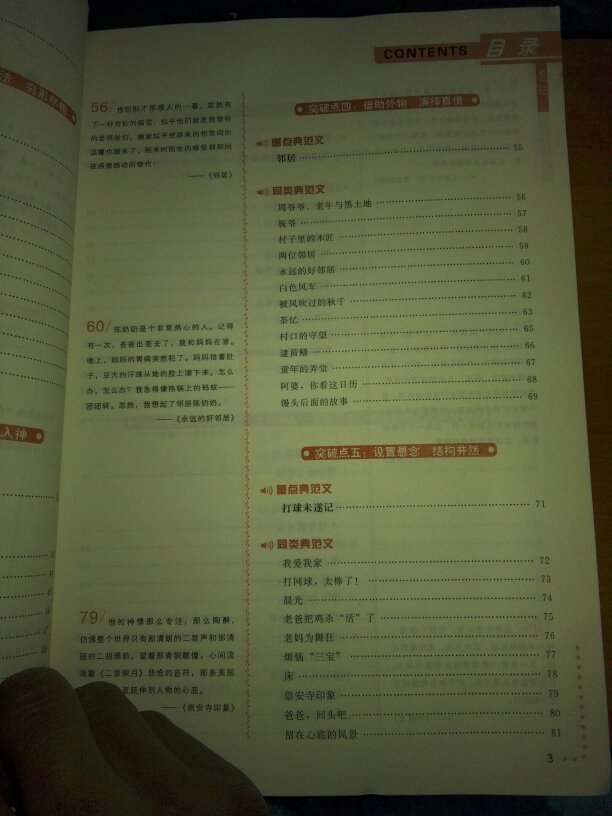 CONTENTS 目录
56/ 想到刚才那感人的一幕，忽然有
了一种奇妙的感觉：似乎他们就是我曾经
的老邻居们，搬家似乎把原来的邻里间的
温馨也搬来了，刚来时陌生的感觉刹那间
被感激感动所替代！
——《邻居》
60/ 陈奶奶是个非常热心的人。记得
有一次，爸爸出差去了，我和妈妈在家。
晚上，妈妈的胃病突然犯了。妈妈捂着肚
子，豆大的汗珠从她的脸上滚下来。怎么
办、怎么办？我急得像热锅上的蚂蚁——
团团转。忽然，我想起了邻居陈奶奶。
——《永远的好邻居》
79/ 他的神情那么专注，那么陶醉，
仿佛整个世界只有那清朗的二泉声和那清
丽的二胡雅韵。望着那青铜雕像，心间流
淌着《二泉映月》悲怆的音符，那条美丽
直延伸到人物的心底。
——《崇安寺印象》
突破点四：借助外物 演绎真情
重点典范文
邻居 55
同类典范文
周爷爷、老牛与黑土地 56
板爷 57
村子里的木匠 58
两位邻居 59
永远的好邻居 60
白色风车 61
被风吹过的秋千 62
茶忆 63
村口的守望 65
逮黄鳝 66
童年的弄堂 67
阿婆，你看这日历 68
馒头后面的故事 69
突破点五：设置悬念 结构井然
重点典范文
打球未遂记 71
同类典范文
我爱我家 72
打网球，太棒了！ 73
晨光 74
老爸把鸡杀“活”了 75
老妈为舞狂 76
烦恼“三宝” 77
床 78
崇安寺印象 79
爸爸，回头吧 80
留在心底的风景 81
3
入神